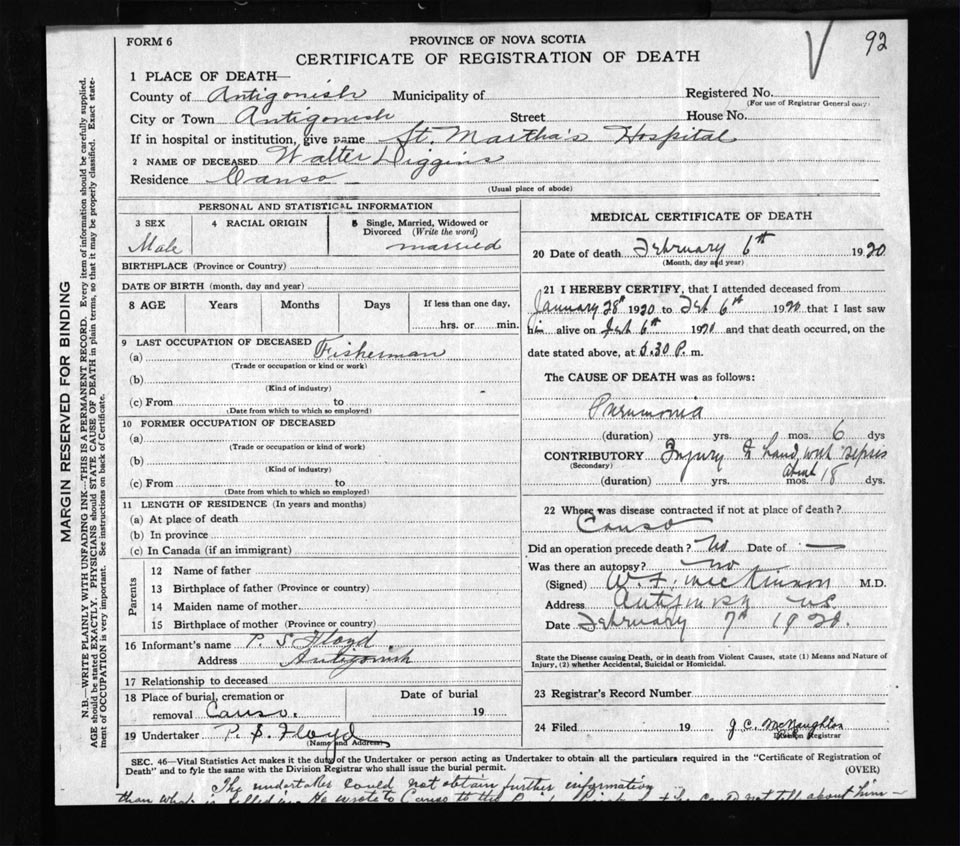 FORM 6
PROVINCE OF NOVA SCOTIA
92
CERTIFICATE OF REGISTRATION OF DEATH
1 PLACE OF DEATH—
County of Antigonish Municipality of Registered No.
(For use of Registrar General only)
City or Town Antigonish Street House No.
If in hospital or institution, give name St. Martha's Hospital
2 NAME OF DECEASED Walter Diggins
Residence Canso
(Usual place of abode)
PERSONAL AND STATISTICAL INFORMATION
3 SEX 4 RACIAL ORIGIN 5 Single, Married, Widowed or Divorced (Write the word)
Male married
BIRTHPLACE (Province or Country)
DATE OF BIRTH (month, day and year)
8 AGE Years Months Days If less than one day,
hrs. or min.
9 LAST OCCUPATION OF DECEASED
(a) Fisherman
(Trade or occupation or kind or work)
(b)
(Kind of industry)
(c) From to
(Date from which to which so employed)
10 FORMER OCCUPATION OF DECEASED
(a)
(Trade or occupation or kind of work)
(b)
(Kind of industry)
(c) From to
(Date from which to which so employed)
11 LENGTH OF RESIDENCE (In years and months)
(a) At place of death
(b) In province
(c) In Canada (if an immigrant)
Parents
12 Name of father
13 Birthplace of father (Province or country)
14 Maiden name of mother
15 Birthplace of mother (Province or country)
16 Informant's name P. S Floyd
Address Antigonish
17 Relationship to deceased
18 Place of burial, cremation or Date of burial
removal Canso. 19
19 Undertaker P. S. Floyd
(Name and Address)
MEDICAL CERTIFICATE OF DEATH
20 Date of death February 6th 1920
(Month, day and year)
21 I HEREBY CERTIFY, that I attended deceased from
January 28th 1920 to Feb 6th 1920 that I last saw
him alive on Feb 6th 1920 and that death occurred, on the
date stated above, at 5.30 P. m.
The CAUSE OF DEATH was as follows:
Pneumonia
(duration) yrs. mos. 6 dys
CONTRIBUTORY Injury to hand with sepsis
(Secondary)
about 18
(duration) yrs. mos. dys.
22 Where was disease contracted if not at place of death?
Canso
Did an operation precede death? No Date of —
Was there an autopsy? no
(Signed) W. F. MacKinnon M.D.
Address Antigonish N.S.
Date February 7th 1920.
State the Disease causing Death, or in death from Violent Causes, state (1) Means and Nature of
Injury, (2) whether Accidental, Suicidal or Homicidal.
23 Registrar's Record Number
24 Filed 19 J. C. McNaughton
Division Registrar
SEC. 46—Vital Statistics Act makes it the duty of the Undertaker or person acting as Undertaker to obtain all the particulars required in the "Certificate of Registration of
Death" and to fyle the same with the Division Registrar who shall issue the burial permit. (OVER)
The undertaker could not obtain further information
than what is filled in. He wrote to Canso to the could not tell about him—
MARGIN RESERVED FOR BINDING
N.B.—WRITE PLAINLY WITH UNFADING INK—THIS IS A PERMANENT RECORD. Every item of information should be carefully supplied.
AGE should be stated EXACTLY. PHYSICIANS should STATE CAUSE OF DEATH in plain terms, so that it may be properly classified. Exact state-
ment of OCCUPATION is very important. See instructions on back of Certificate.